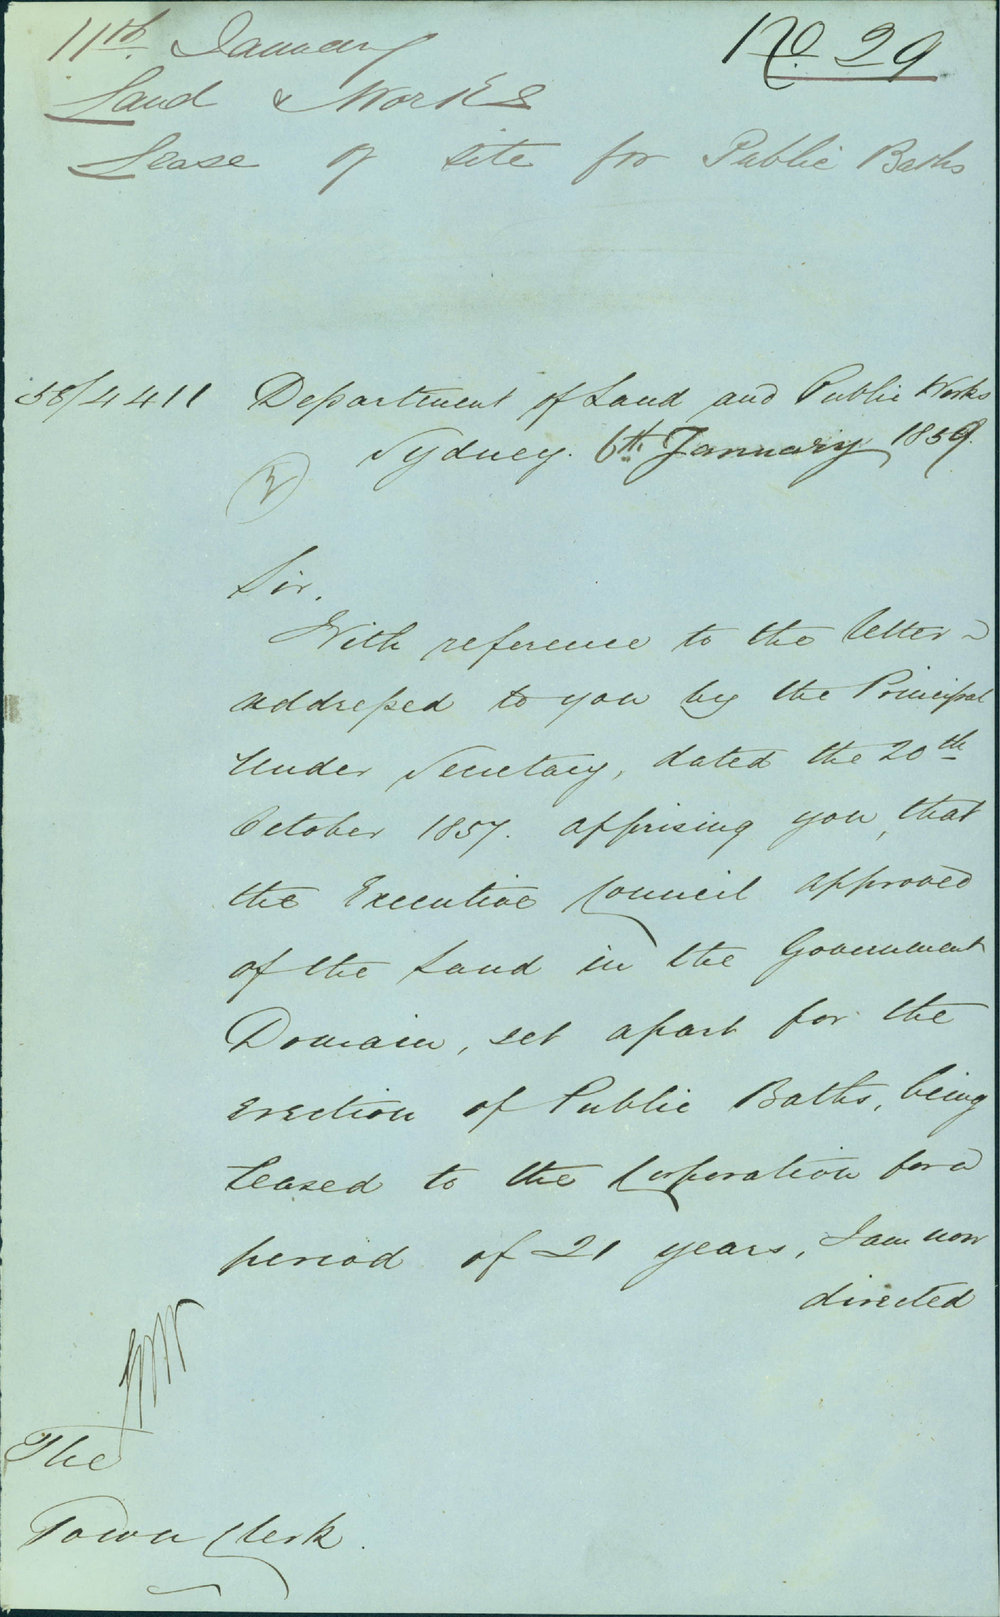 11th January
No 29
Land & Works
Lease of site for Public Baths
58/4411
Department of Land and Public Works
Sydney. 6th January 1859.
Sir,
With reference to the letter
addressed to you by the Principal
Under Secretary, dated the 20th
October 1857. apprising you, that
the Executive Council approved
of the Land in the Government
Domain, set apart for the
erection of Public Baths, being
leased to the Corporation for a
period of 21 years, I am now
directed
The
Town Clerk.